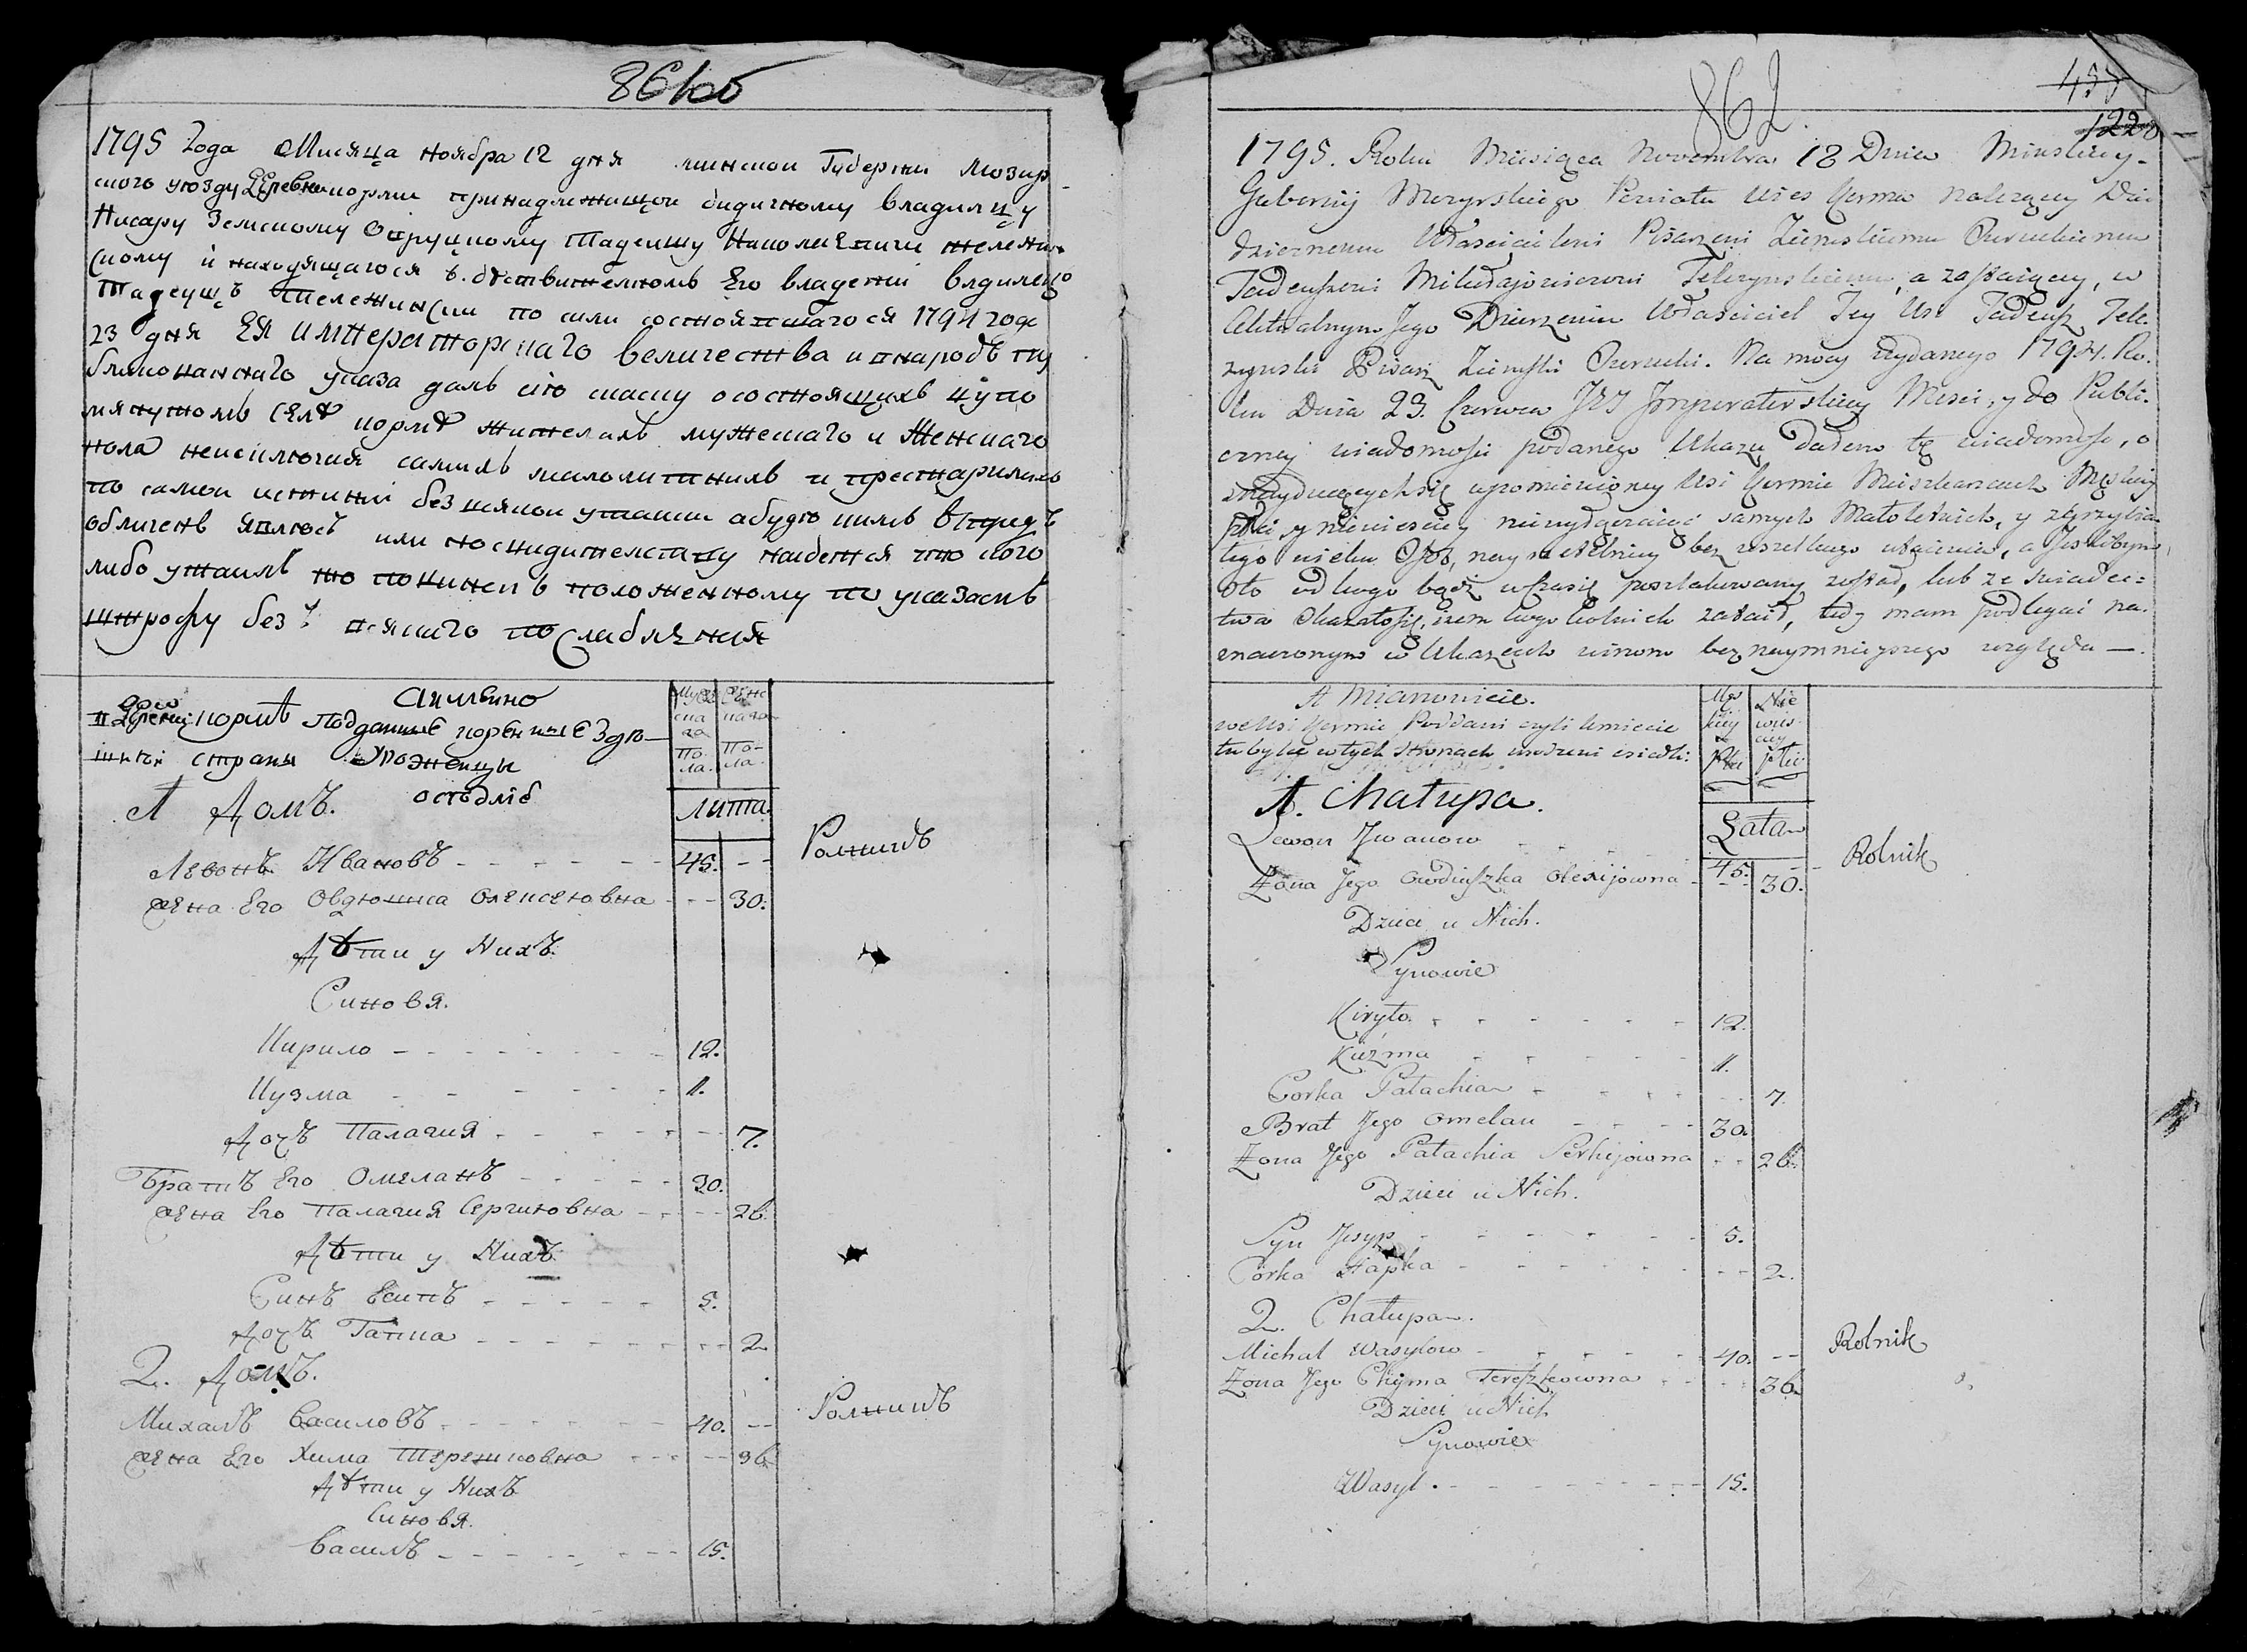 861об
1795 Года Мисяца ноября 12 дня минской Губернии Мозир
ского уюзду Деревни кормы принадлежищой дидичному владилцу
Писару Земскому Овруцкому Тадеушу Николаевичи Тележин
скому и находящагося в дѣствителномъ Его владении владилецъ
Тадеушъ Тележинский по сили состоявшагося 1794 года
23 дня Ея императорскаго величества и в народъ пу
бликованнаго указа далъ сию скаску о состоящихъ в упо
мянутомъ селѣ кормѣ жителахъ мужескаго и женскаго
пола неисключая самихъ малолитнихъ и престарилихъ
по самой истинни без всякой утайки а буду кимъ впредъ
обличенъ явлюсъ или по свидителству найдется что кого
либо утаилъ то повинен в положенному по указамъ
штрофу без всякаго послабления
Аимѣнно
в Деревни кормѣ подданные коренные здѣ
шней страны Уроженцы
осѣдліе
Муже
ска
го
по
ла
Женс
каго
по-
ла
1 Домъ.
лита
Левонъ Ивановъ - - - - - 45. - - Ролникъ
жена Его Овдюшка Олексеювна - - - 30.
Дѣти у Нихъ.
Синовя.
Кирило - - - - - - 12.
Кузма - - - - - 11.
Дочъ Палагия - - - - - 7.
Братъ Его Омеланъ - - - - - 30.
жена Его Палагия Сергиювна - - - - 26.
Дѣти у Нихъ.
Синъ Есипъ - - - - - 5.
Дочъ Гапка - - - - - - 2.
2. Домъ.
Михалъ Василовъ - - - - - 40. - - Ролникъ
жена Его Хима Терешковна - - - - - 36.
Дѣти у Нихъ
Синовя.
Василъ - - - - - - 15.
862.
1220
1795. Roku Miesiąca Novembra 18 Dnia Minskiey
Gubernij Mozyrskiego Powiatu Wies Korma należący Dzie
dzicznemu Właścicielowi Pisarzowi Ziemskiemu Owruckiemu
Tadeuszowi Mikołajowiczowi Teleżynskiemu, a zostaiący, w
Aktualnym Jego Dzierzeniu Właściciel Jey Ur. Tadeusz Tele
zynski Pisarz Ziemski Owrucki. Na mocy wydanego 1794. Ro.
ku Dnia 23. Czerwca JEJ Jmperatorskiey Mosci, y do Publi-
czney wiadomosci podanego Ukazu Dałem tę wiadomość, o
znayduiącychsię w pomienioney Wsi Kormie Mieszkancach Męskiey
płci y niewiesciey niewyłączaiąc samych Małoletnich, y zgrzybia
łego wieku Osob, nayrzetelniey bez wszelkiego utaienia, a Jeslibym
o to od kogo bądz w czasie poszlakowany został, lub ze swiadec=
twa Okazałosię, żem kogo kolwiek zataił, tedy mam podlegać na-
znaczonym w Ukazach winom bez naymnieyszego względu —.
A Mianowicie.
we Wsi Kormie Poddani czyli kmiecie
tubylce w tych Stronach urodzeni i siedli:
Mę
skiey
Płci
Nie
wies
ciey
płci
1. Chałupa.
Lata
Lewon Jwanow - - - - 45. - - Rolnik
Żona Jego Owdiuszka Olexijowna - - - 30.
Dzieci u Nich.
Synowie
Kiryło. - - - - - - 12.
Kuźma - - - - - 11.
Corka Pałachia - - - - - - 7.
Brat Jego Omelan - - - - 30.
Żona Jego Pałachia Serhijowna - - 26.
Dzieci u Nich.
Syn Jesyp - - - - - - 5.
Corka Hapka - - - - - - - 2.
2. Chałupa.
Michał Wasylow - - - - - - 40. - - Rolnik
Żona Jego Chyma Tereszkowna - - - - 36.
Dzieci u Nich
Synowie
Wasyl. - - - - - - - - 15.